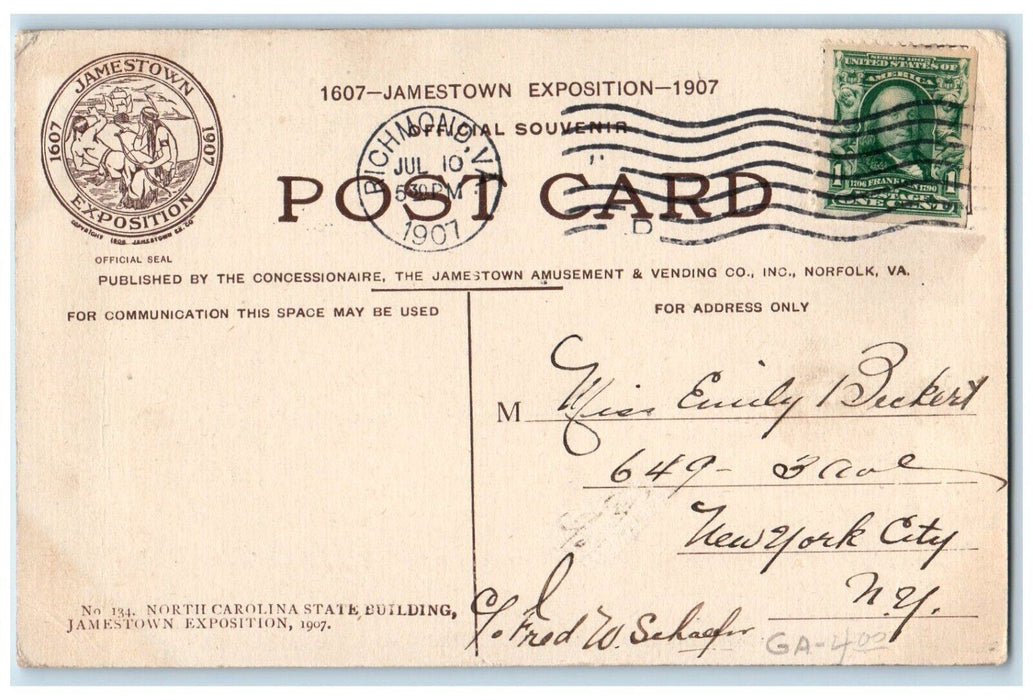 JAMESTOWN
1607 1907
EXPOSITION
COPYRIGHT 1906 JAMESTOWN EX. CO.
OFFICIAL SEAL
1607—JAMESTOWN EXPOSITION—1907
OFFICIAL SOUVENIR
POST CARD
RICHMOND, VA.
JUL 10
530 PM
1907
D
SERIES 1902
UNITED STATES OF
AMERICA
1706 FRANKLIN 1790
1 POSTAGE 1
ONE CENT
PUBLISHED BY THE CONCESSIONAIRE, THE JAMESTOWN AMUSEMENT & VENDING CO., INC., NORFOLK, VA.
FOR COMMUNICATION THIS SPACE MAY BE USED
FOR ADDRESS ONLY
M Miss Emily Beckert
649 - 3 Ave
New York City
N.Y.
C/o Fred W. Schaefer
GA-4 00
No 134. NORTH CAROLINA STATE BUILDING,
JAMESTOWN EXPOSITION, 1907.